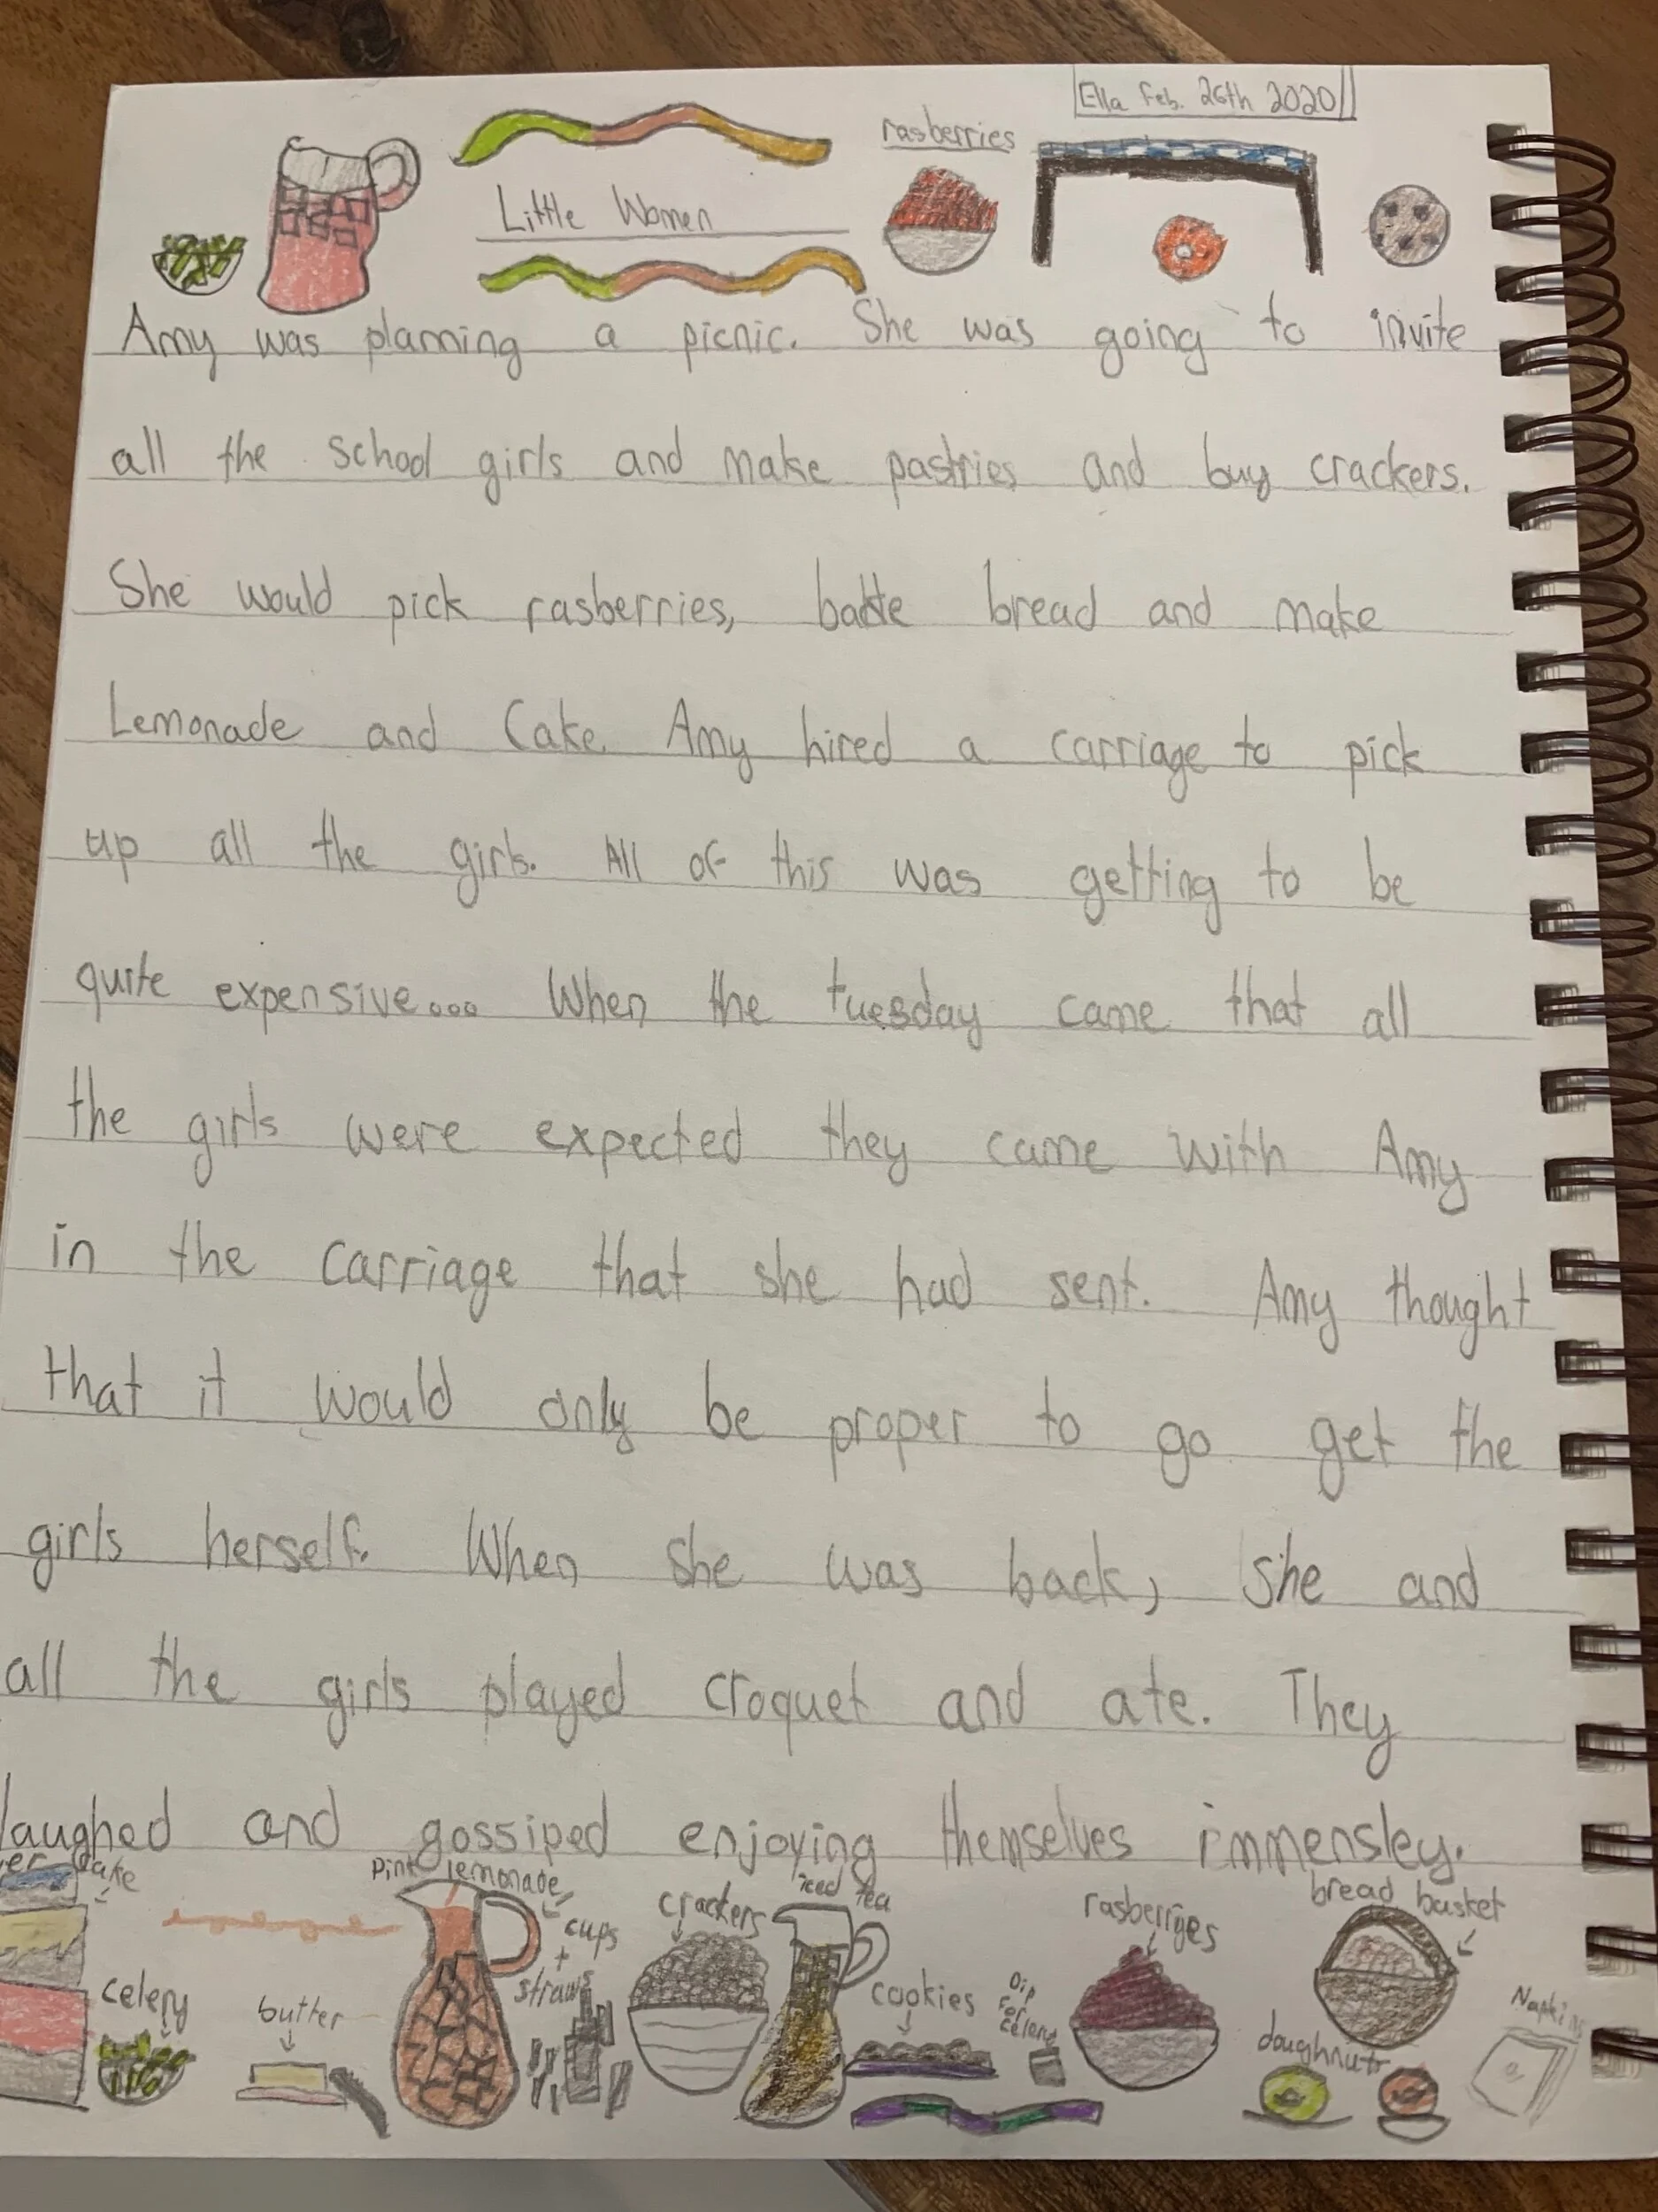 Ella Feb. 26th 2020
rasberries
Little Women
Amy was planning a picnic. She was going to invite
all the school girls and make pastries and buy crackers.
She would pick rasberries, bake bread and make
Lemonade and Cake. Amy hired a carriage to pick
up all the girls. All of this was getting to be
quite expensive... When the tuesday came that all
the girls were expected they came with Amy
in the carriage that she had sent. Amy thought
that it would only be proper to go get the
girls herself. When she was back, she and
all the girls played croquet and ate. They
laughed and gossiped enjoying themselves immensley.
cake
pink lemonade
cups
+
straws
crackers
iced tea
rasberries
bread basket
celery
butter
cookies
Dip
For
celery
doughnuts
Napkins